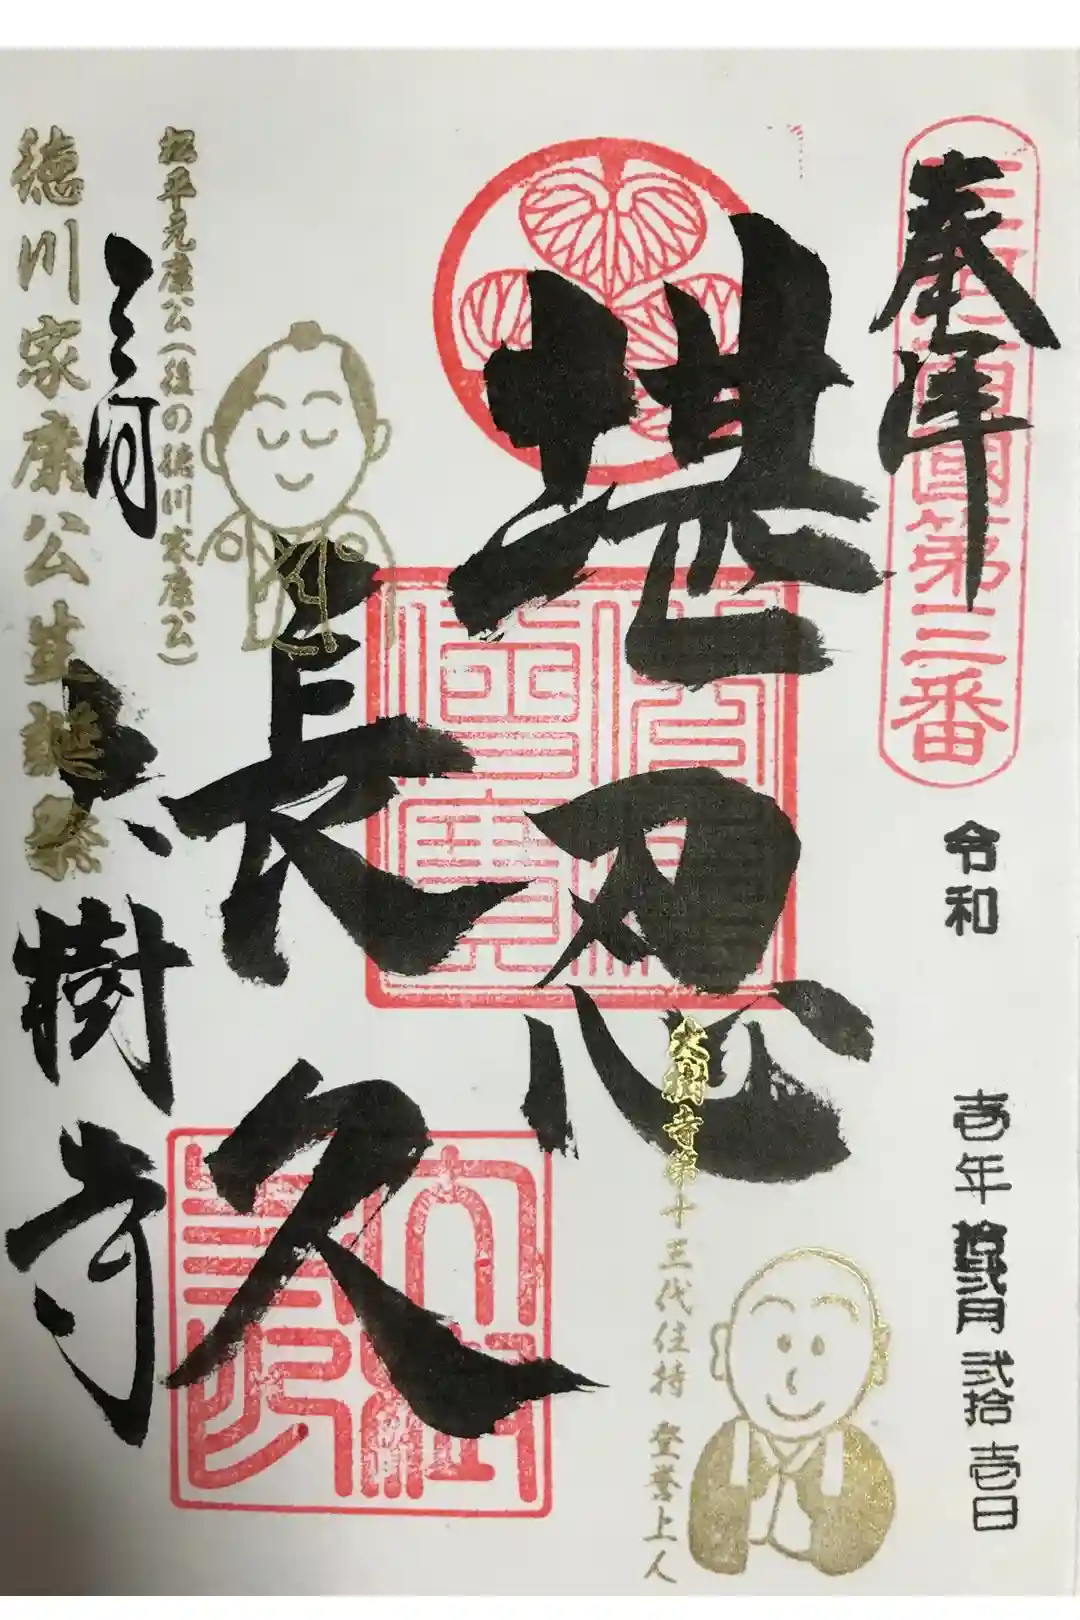 奉拝
三河西国第三番
令和 壱年 拾弐月 弐拾壱日
堪忍
大樹寺第十三代住持 登誉上人
長久
松平元康公(後の徳川家康公)
三河
大樹寺
徳川家康公生誕祭